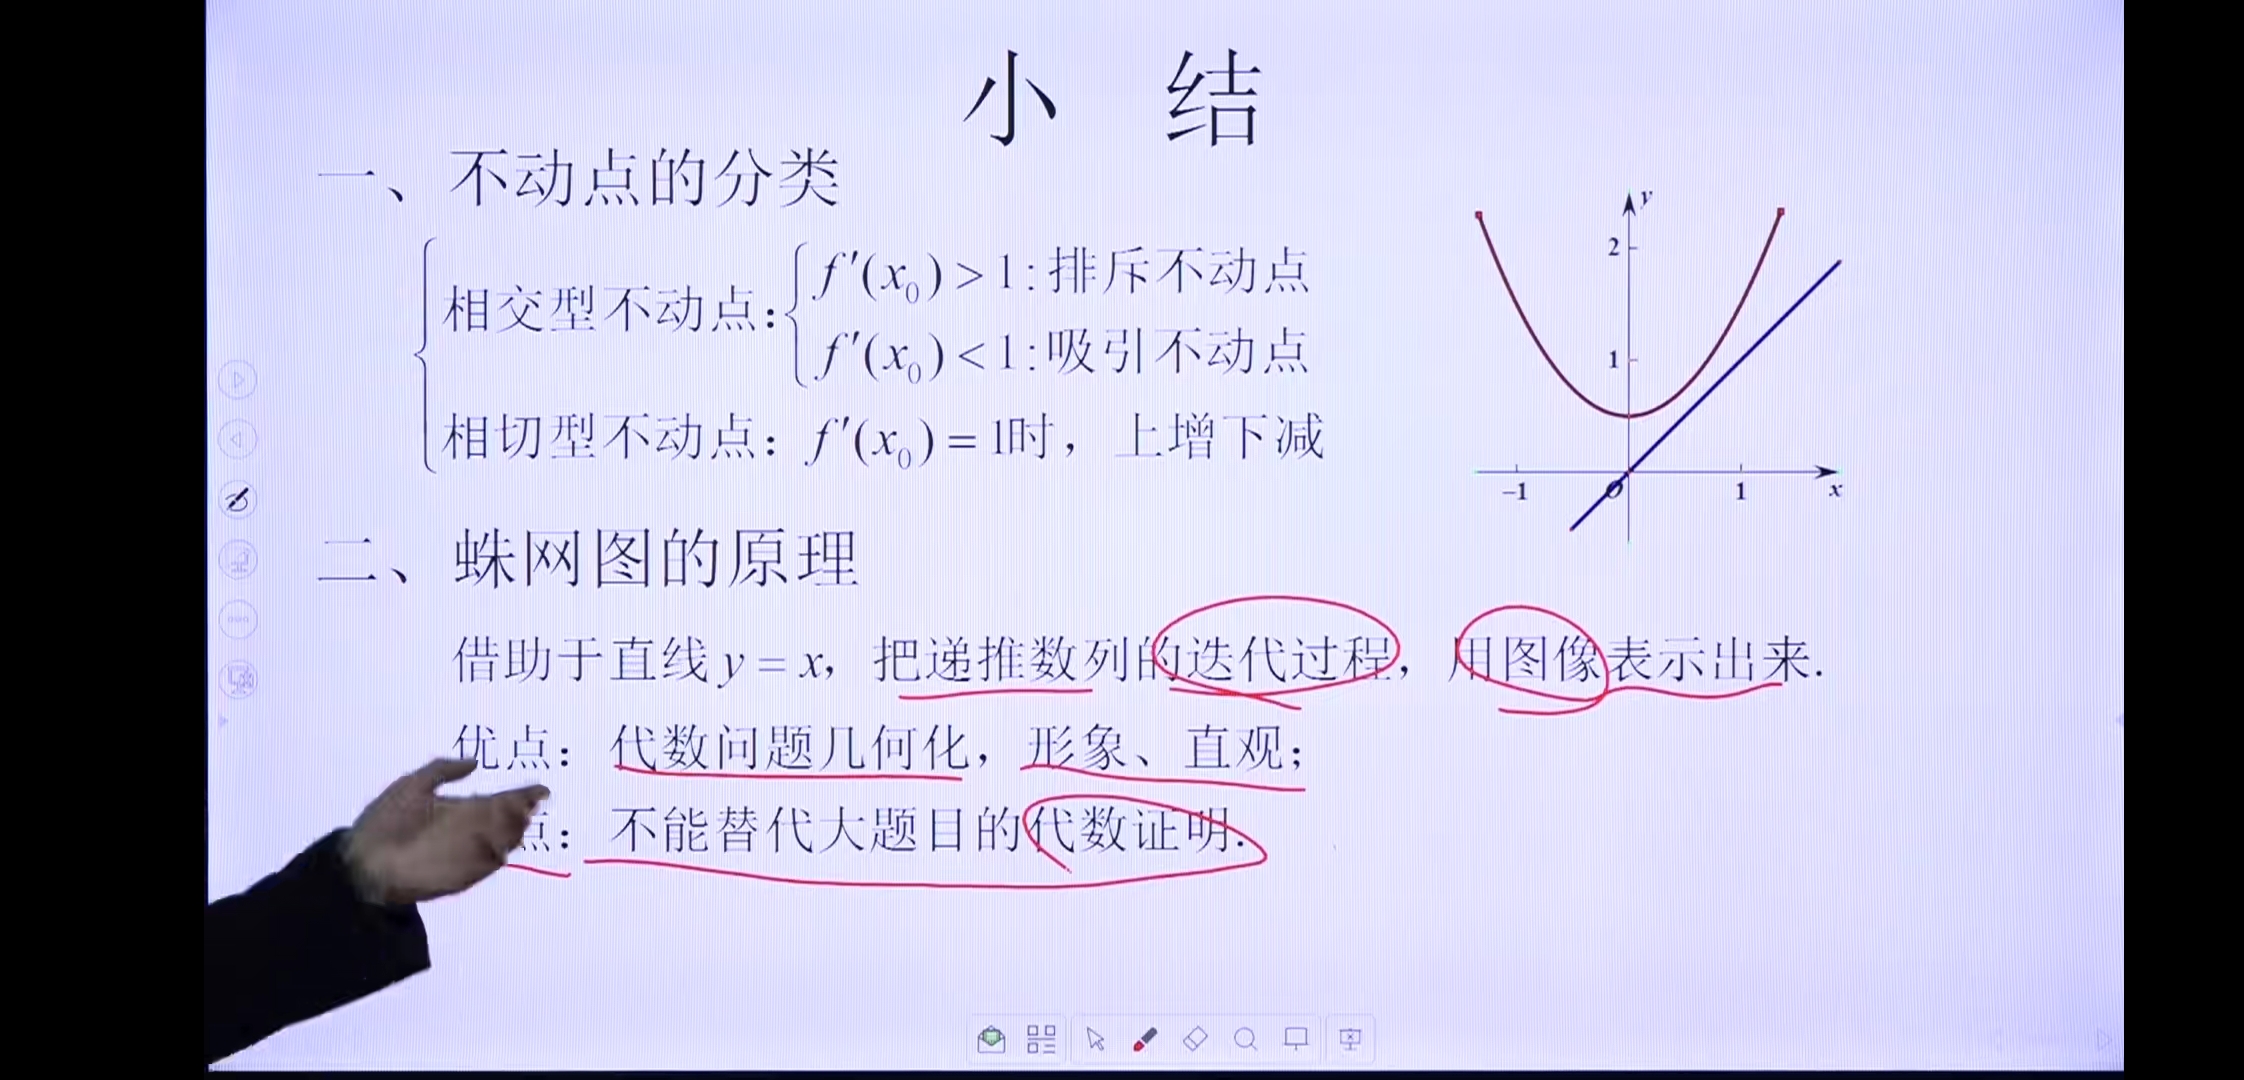 小 结
一、不动点的分类
相交型不动点：
f′(x₀) > 1：排斥不动点
f′(x₀) < 1：吸引不动点
相切型不动点：f′(x₀) = 1时，上增下减
y
2
1
-1
O
1
x
二、蛛网图的原理
借助于直线 y = x，把递推数列的迭代过程，用图像表示出来.
优点：代数问题几何化，形象、直观；
点：不能替代大题目的代数证明.